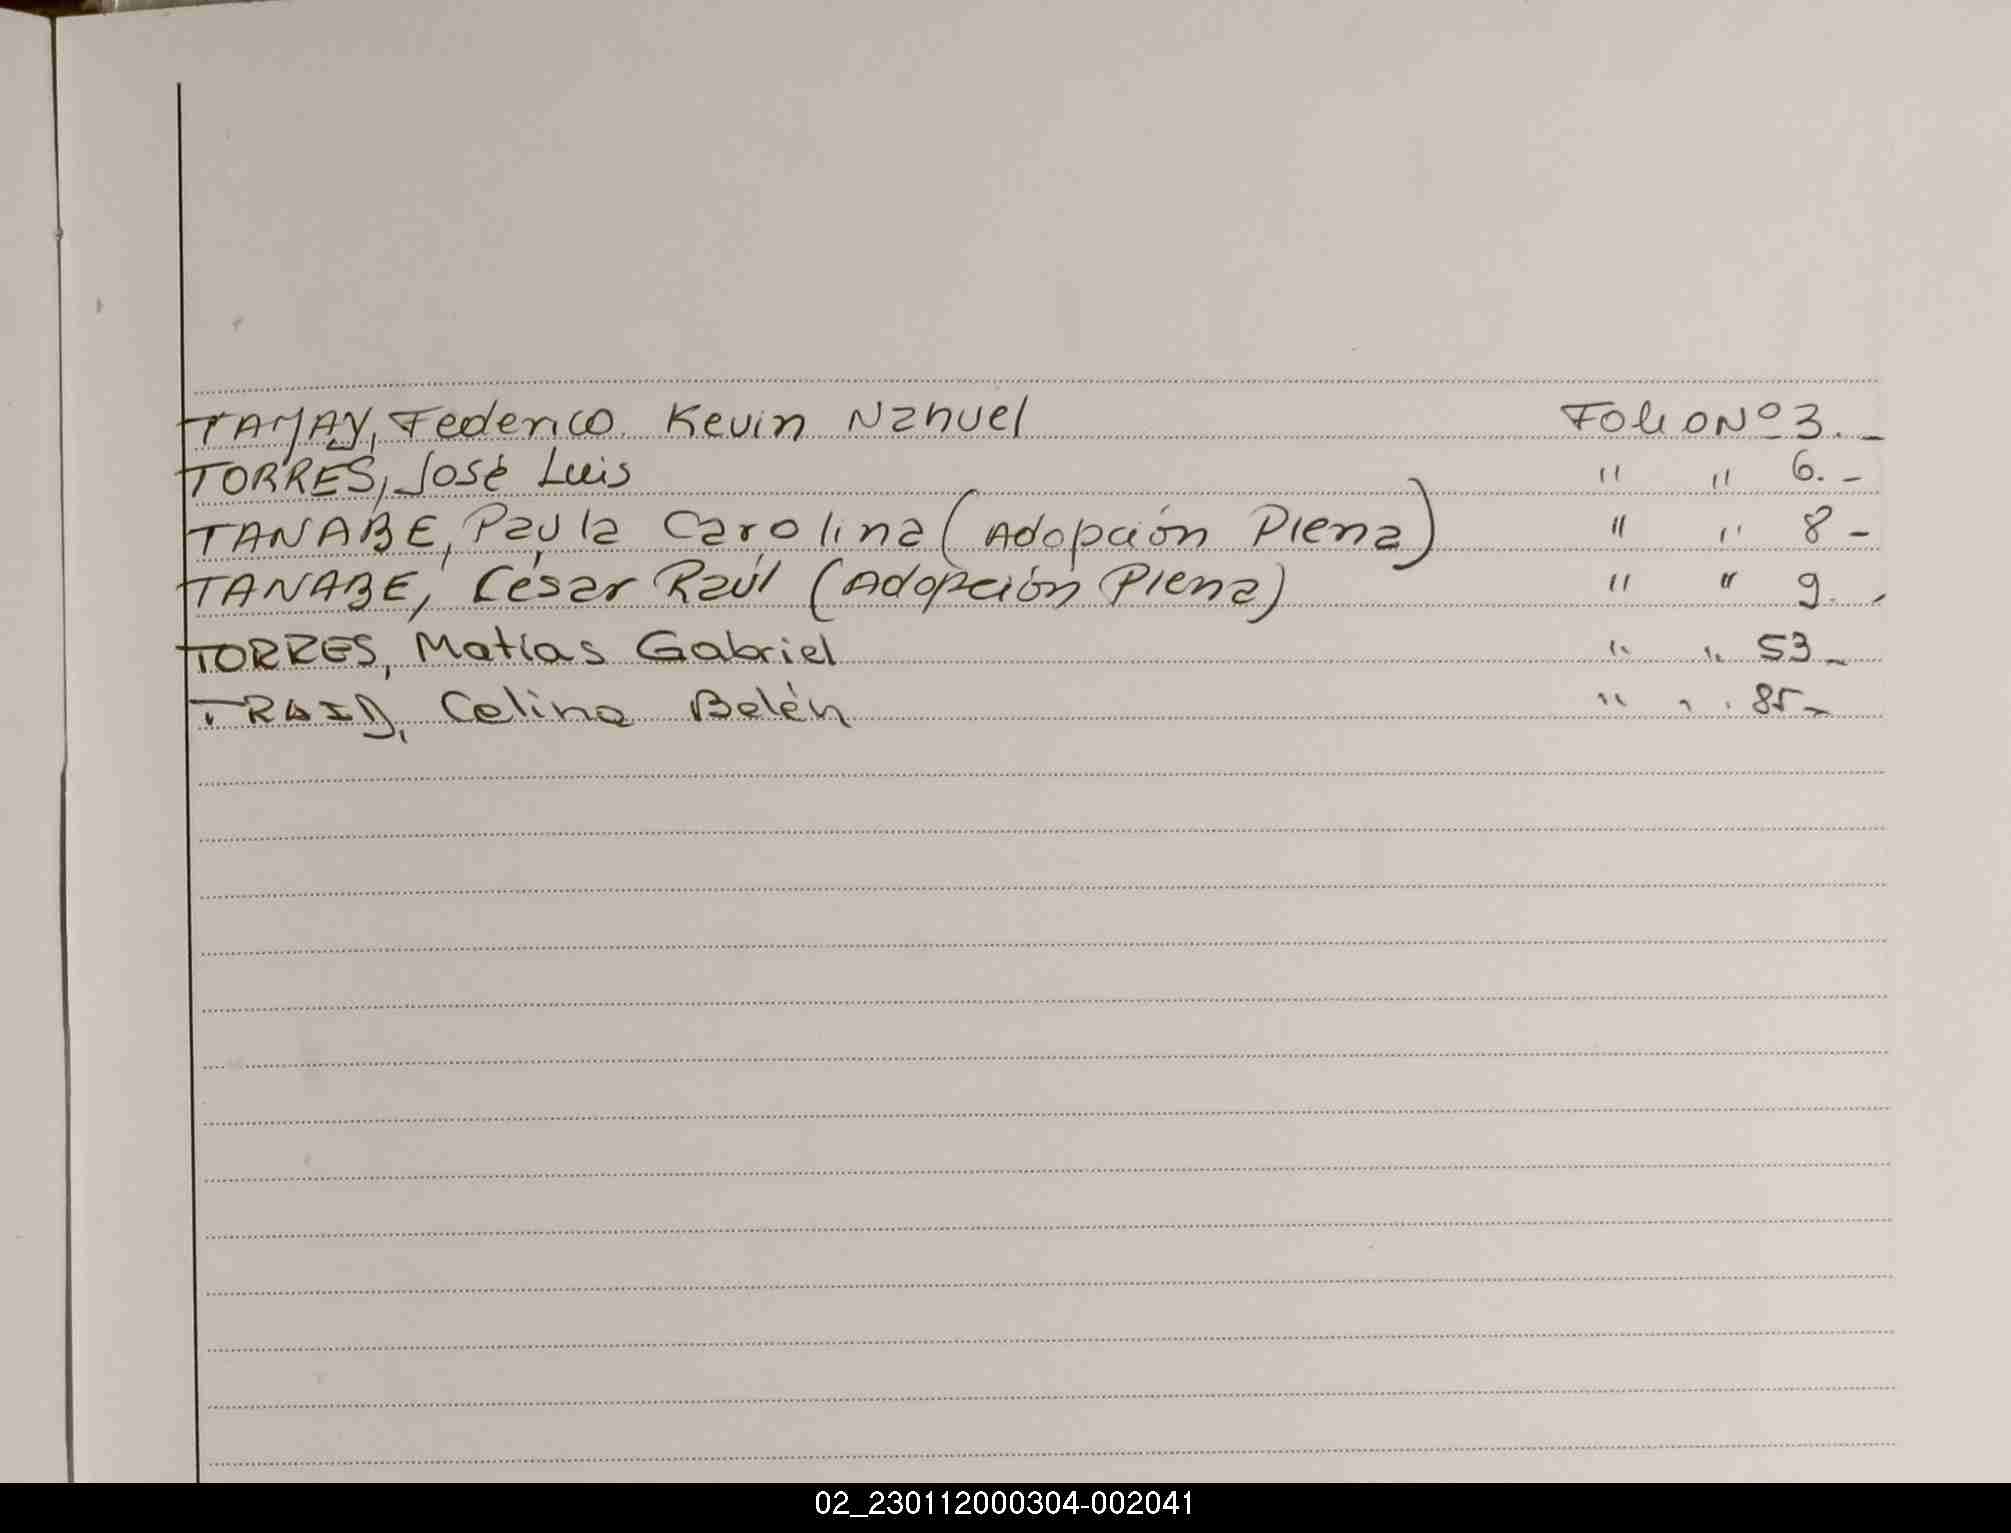 TAMAY, Federico Kevin Nahuel Folio Nº 3.-
TORRES, José Luis " " 6.-
TANABE, Paula Carolina (Adopción Plena) " " 8-
TANABE, César Raúl (Adopción Plena) " " 9.-
TORRES, Matías Gabriel " " 53-
TRAID, Celina Belén " " 85-
02_230112000304-002041